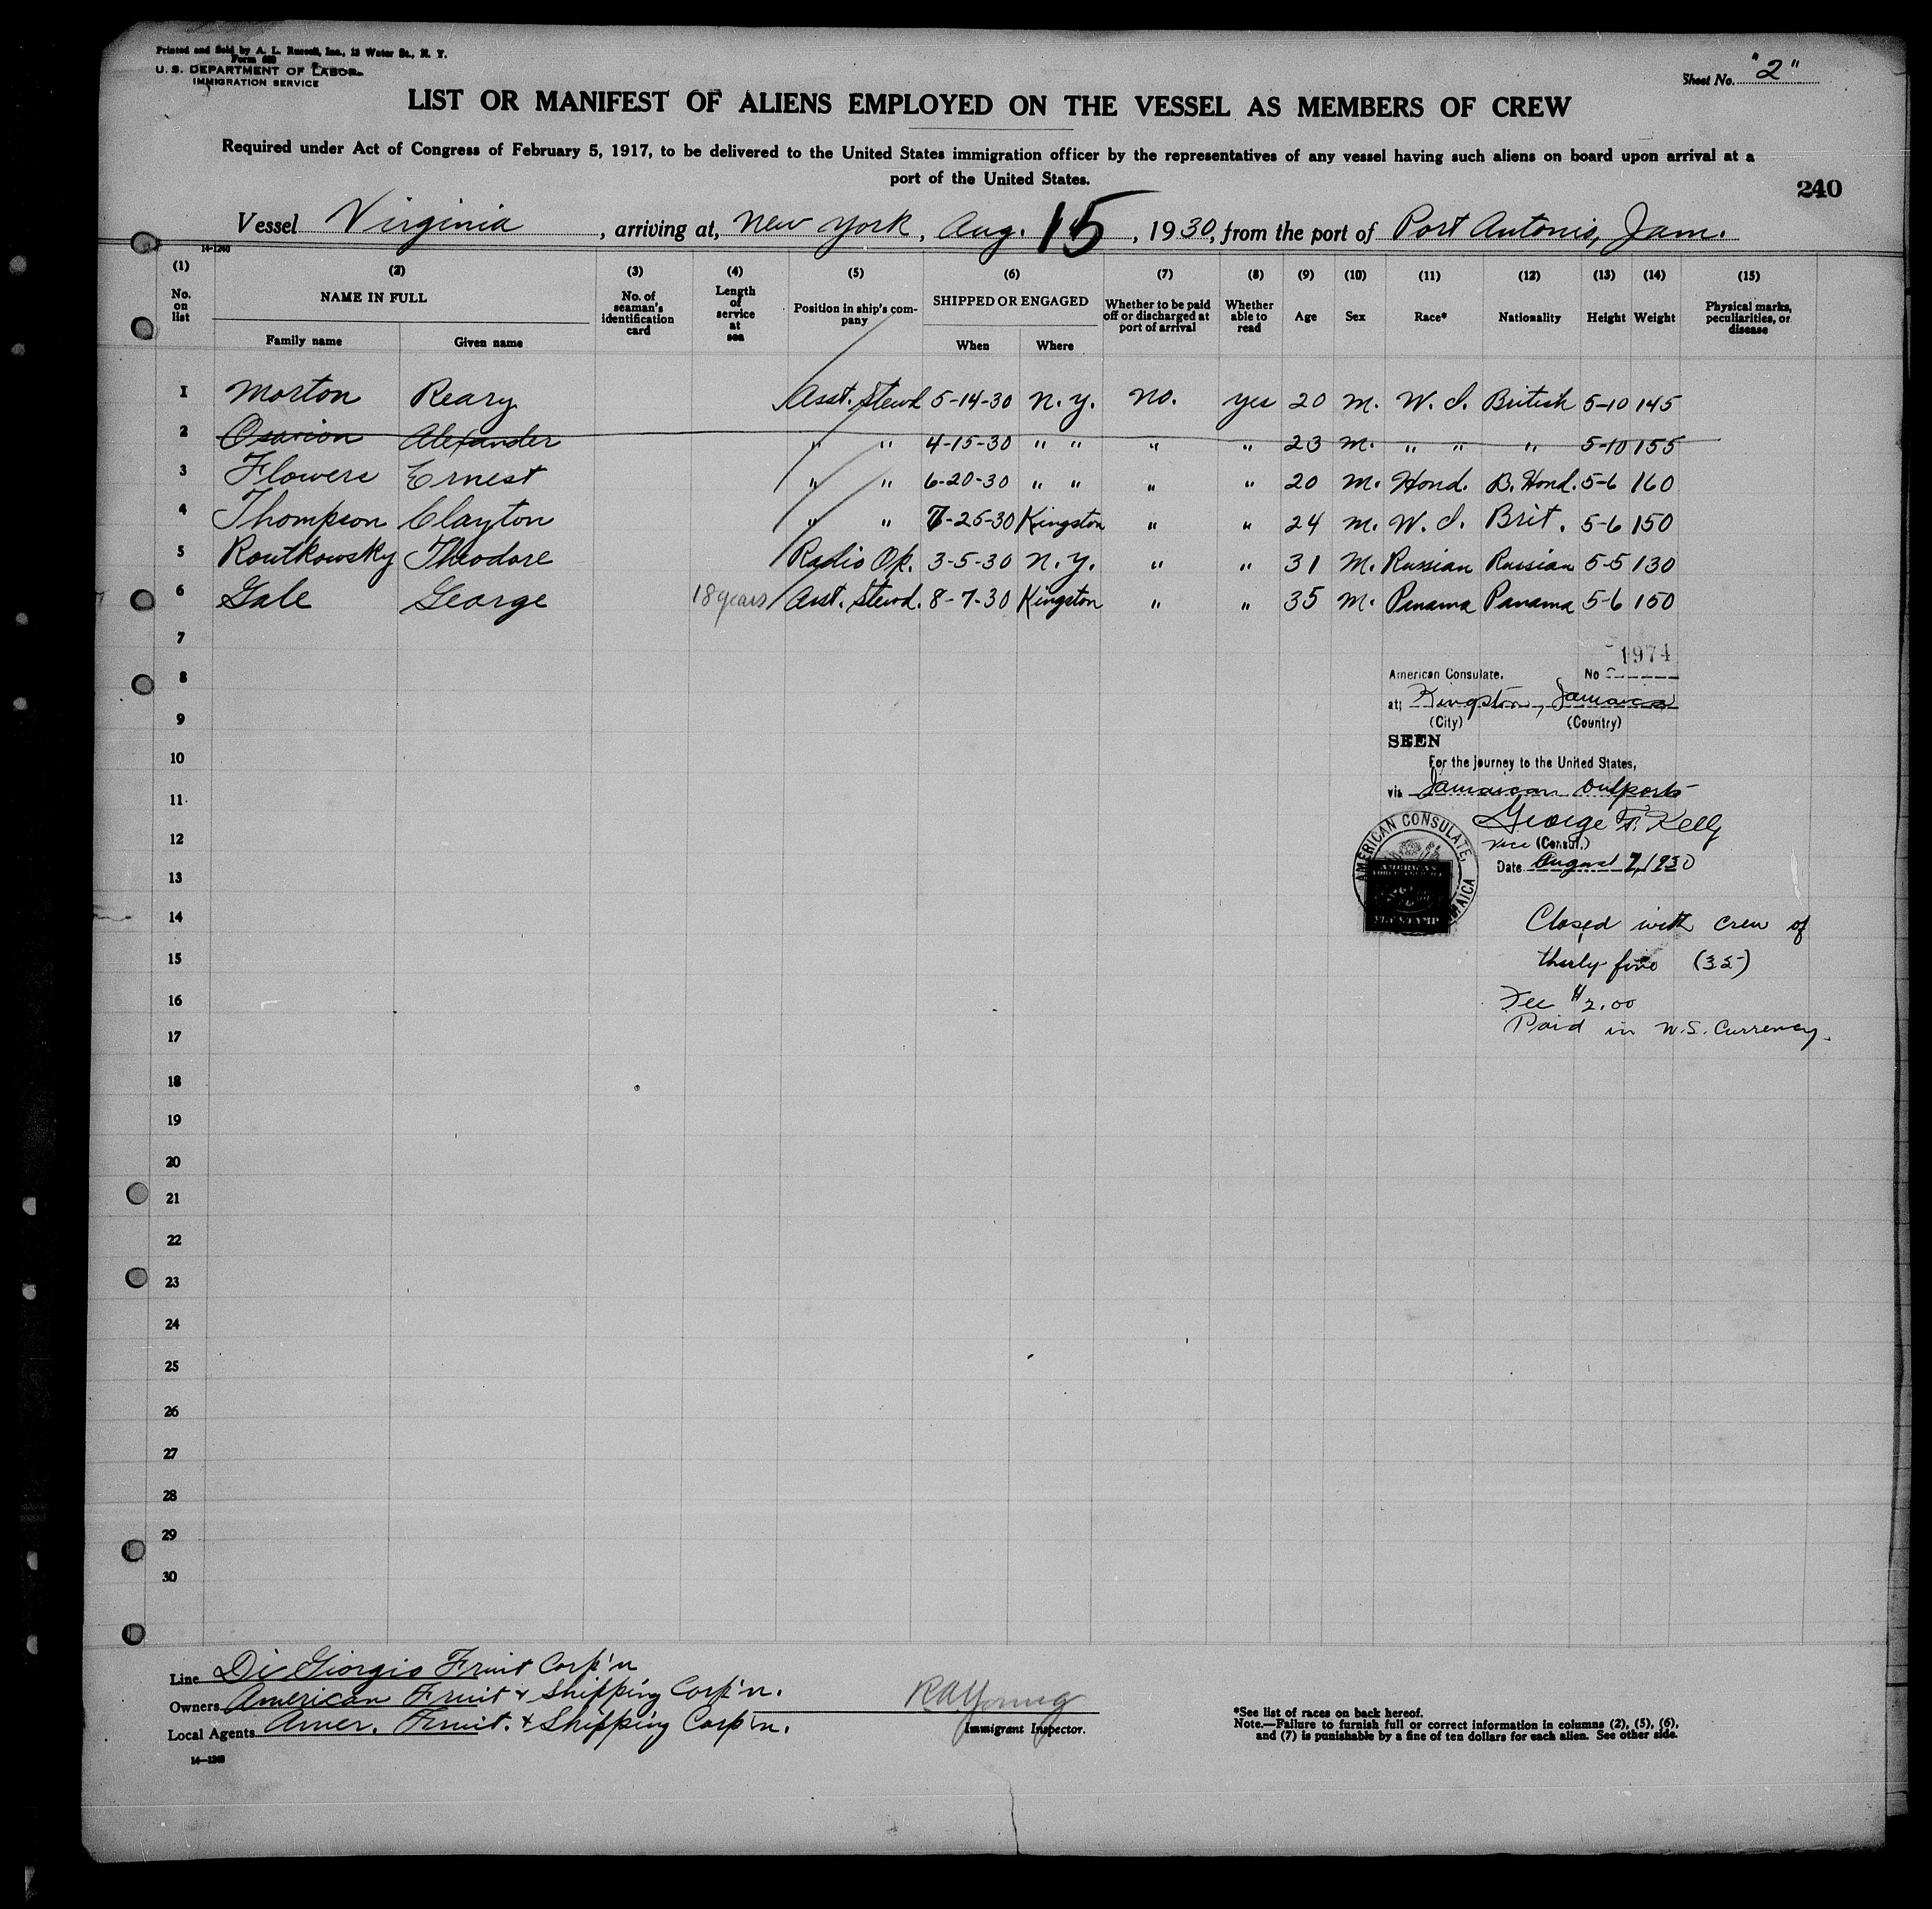 Printed and Sold by A. L. Russell, Inc., 13 Water St., N. Y.
U. S. DEPARTMENT OF LABOR
IMMIGRATION SERVICE
Sheet No. "2"
LIST OR MANIFEST OF ALIENS EMPLOYED ON THE VESSEL AS MEMBERS OF CREW
Required under Act of Congress of February 5, 1917, to be delivered to the United States immigration officer by the representatives of any vessel having such aliens on board upon arrival at a
port of the United States.
240
Vessel Virginia, arriving at, New York, Aug. 15, 1930, from the port of Port Antonio, Jam.
14-1240
(1) (2) (3) (4) (5) (6) (7) (8) (9) (10) (11) (12) (13) (14) (15)
No. on list NAME IN FULL Family name Given name No. of seaman's identification card Length of service at sea Position in ship's company SHIPPED OR ENGAGED When Where Whether to be paid off or discharged at port of arrival Whether able to read Age Sex Race* Nationality Height Weight Physical marks, peculiarities, or disease
1 Morton Reary Asst. Stewd 5-14-30 N.Y. No. yes 20 M. W. I. British 5-10 145
2 Alexander " " 4-15-30 " " " " 23 M. " " " 5-10 155
3 Flowers Ernest " " 6-20-30 " " " " 20 M. Hond. B. Hond. 5-6 160
4 Thompson Clayton " " 7-25-30 Kingston " " 24 M. W. I. Brit. 5-6 150
5 Routkowsky Theodore Radio Op. 3-5-30 N.Y. " " 31 M. Russian Russian 5-5 130
6 Gale George 18 years Asst. Stewd. 8-7-30 Kingston " " 35 M. Panama Panama 5-6 150
7
8
9
10
11
12
13
14
15
16
17
18
19
20
21
22
23
24
25
26
27
28
29
30
1974
American Consulate. No
at Kingston, Jamaica
(City) (Country)
SEEN
For the journey to the United States,
via Jamaican outports
George F. Kelly
Vice (Consul.)
Date August 7, 1930
AMERICAN CONSULATE,
Closed with crew of
thirty five (35)
Fee $2.00
Paid in U.S. Currency.
Line Di Giorgio Fruit Corp'n
Owners American Fruit & Shipping Corp'n.
Local Agents Amer. Fruit. & Shipping Corp'n.
14-1240
RA Young
Immigrant Inspector.
*See list of races on back hereof.
Note.—Failure to furnish full or correct information in columns (2), (5), (6),
and (7) is punishable by a fine of ten dollars for each alien. See other side.